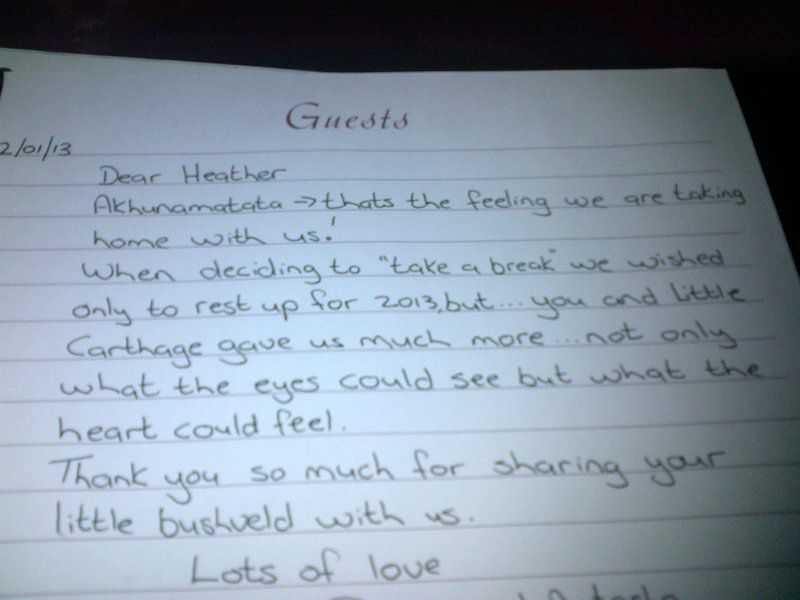 Guests
2/01/13
Dear Heather
Akhunamatata → thats the feeling we are taking
home with us!
When deciding to "take a break" we wished
only to rest up for 2013, but... you and Little
Carthage gave us much more... not only
what the eyes could see but what the
heart could feel.
Thank you so much for sharing your
little bushveld with us.
Lots of love